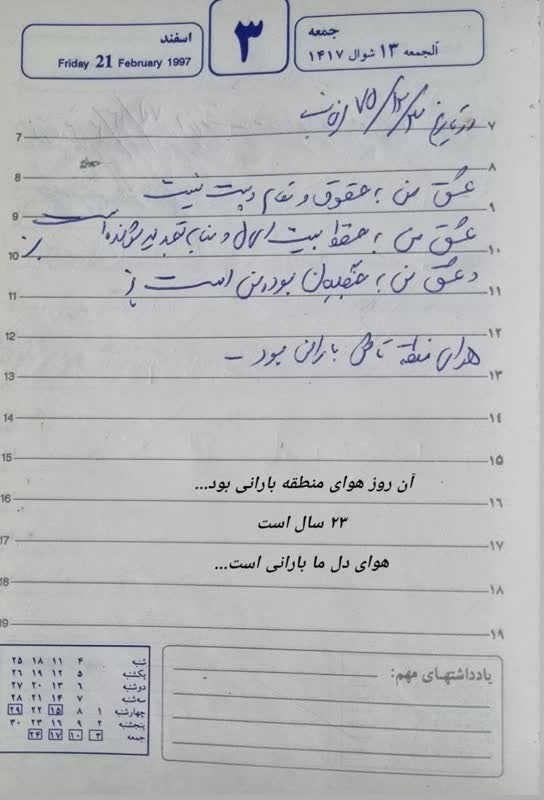 جمعه
۳
اسفند
الجمعه ۱۳ شوال ۱۴۱۷
Friday 21 February 1997
در تاریخ ۷۵/۱۲/۳
7 ۷
8 ۸
عشق من به حقوق و مقام و پست نیست
9 ۹
عشق من به حفظ بیت المال و
10 ۱۰
و عشق من به بودن من است
11 ۱۱
12 ۱۲
هوای منطقه بارانی بود –
13 ۱۳
14 ۱٤
15 ۱۵
آن روز هوای منطقه بارانی بود...
16 ۱٦
۲۳ سال است
17 ۱۷
هوای دل ما بارانی است...
18 ۱۸
19 ۱۹
یادداشتهـای مهم:
شنبه ۴ ۱۱ ۱۸ ۲۵
یکشنبه ۵ ۱۲ ۱۹ ۲۶
دوشنبه ۶ ۱۳ ۲۰ ۲۷
سه شنبه ۷ ۱۴ ۲۱ ۲۸
چهارشنبه ۱ ۸ ۱۵ ۲۲ ۲۹
پنجشنبه ۲ ۹ ۱۶ ۲۳ ۳۰
جمعه ۳ ۱۰ ۱۷ ۲۴